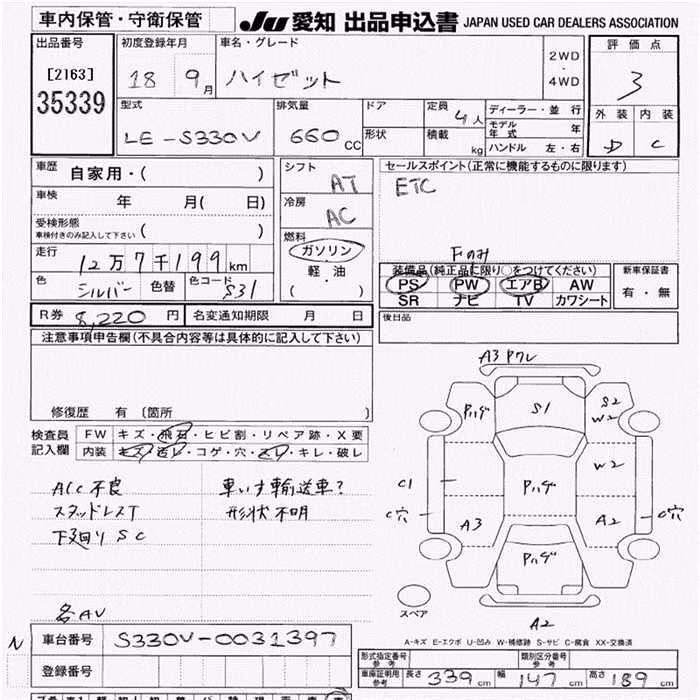 車内保管・守衛保管
JU 愛知 出品申込書 JAPAN USED CAR DEALERS ASSOCIATION
出品番号
[2163]
35339
初度登録年月
18 9月
車名・グレード
ハイゼット
2WD
・
4WD
評価点
3
型式
LE-S330V
排気量
660 CC
ドア
形状
定員
4人
積載
kg
ディーラー・並行
モデル年式 年
ハンドル 左・右
外装 内装
D C
車歴
自家用・( )
車検
年 月( 日)
受検形態
車検付きのみ記入して下さい ( )
走行
12万7千199km
色
シルバー
色替
色コード
S31
シフト
AT
冷房
AC
燃料
ガソリン
軽・油
( )
セールスポイント(正常に機能するものに限ります)
ETC
Fのみ
装備品(純正品に限り○をつけてください)
PS PW エアB AW
SR ナビ TV カワシート
新車保証書
有・無
R券 8,220 円
名変通知期限 月 日
後日品
注意事項申告欄(不具合内容等は具体的に記入して下さい)
修復歴 有 [箇所 ]
検査員
記入欄
FW キズ・飛石・ヒビ割・リペア跡・X要
内装 キズ・汚レ・コゲ・穴・スレ・キレ・破レ
A/C不良
スタッドレスT
下廻り SC
車いす輸送車?
形状不明
各AV
A3 ワレ
Pハゲ
S1
S2
W2
W2
Pハゲ
C1
C穴
A3
A2
C穴
Pハゲ
スペア
A2
A-キズ E-エクボ U-凹み W-補修跡 S-サビ C-腐食 XX-交換済
N
車台番号 S330V-0031397
登録番号
形式指定番号
参考
類別区分番号
参考
車庫証明用
参考
長さ 339 cm 幅 147 cm 高さ 189 cm